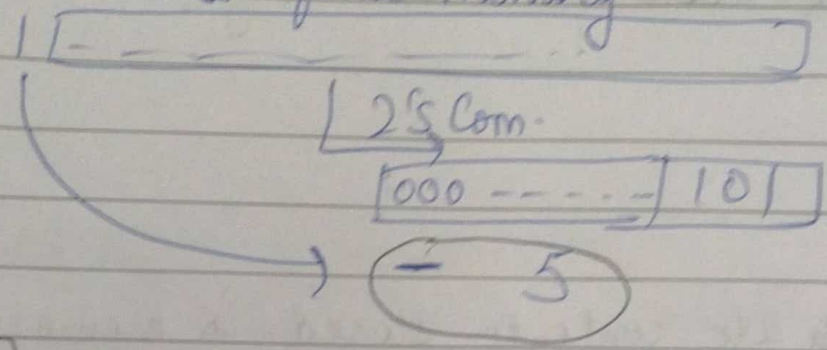 1 - - - - - - -
2's Com.
000 - - - - - 101
- 5